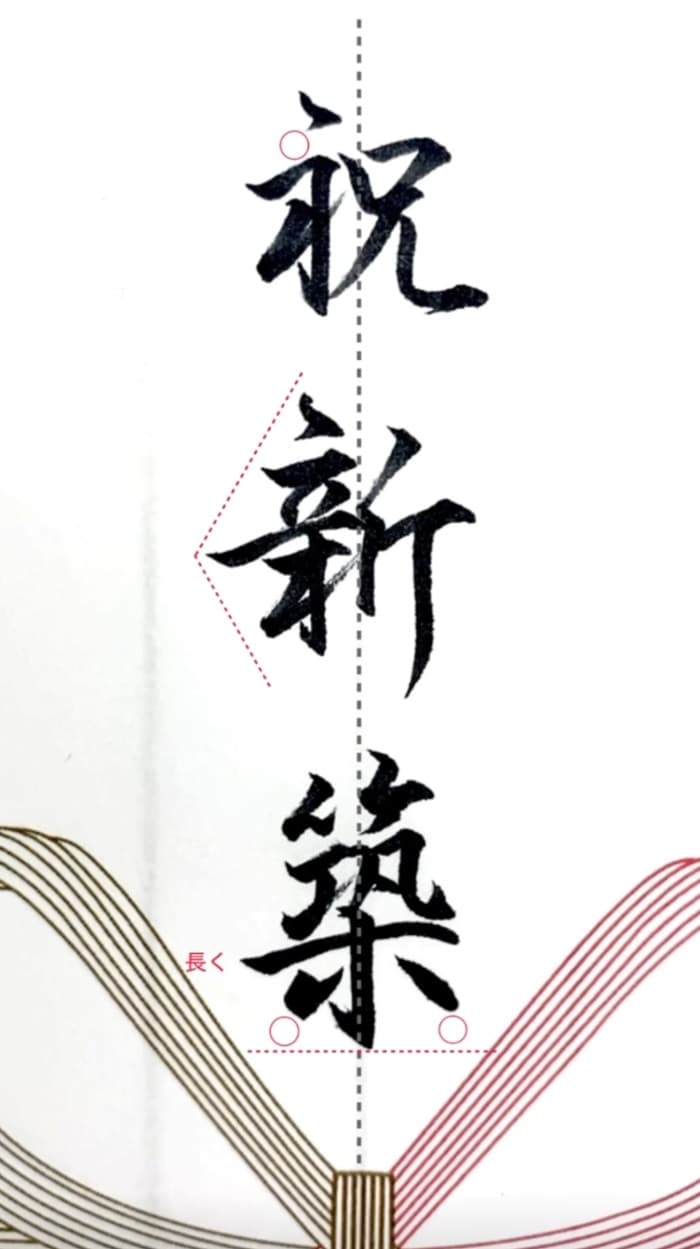 祝新築
長く